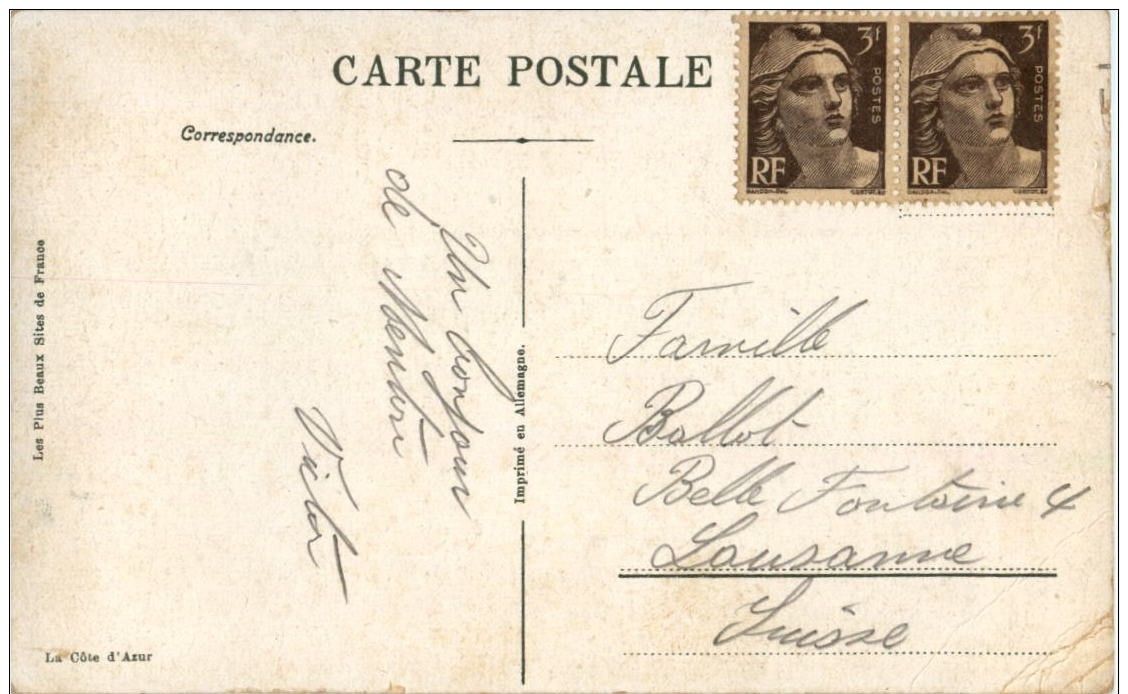 CARTE POSTALE
Correspondance.
3f
POSTES
RF
GANDON-DEL
CORTOT.SC
3f
POSTES
RF
GANDON-DEL
CORTOT.SC
Les Plus Beaux Sites de France
La Côte d'Azur
Un bonjour
de Menton
Victor
Imprimé en Allemagne.
Famille
Ballot
Belle Fontaine 4
Lausanne
Suisse